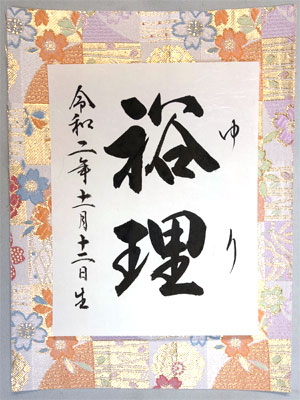 裕理
ゆり
令和二年十一月十二日生